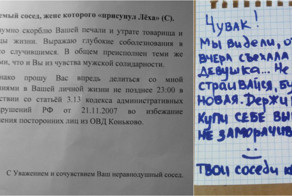 емый сосед, жене которого «присунул Лёха» (С).
умно скорблю Вашей печали и утрате товарища и
ды жизни. Выражаю глубокие соболезнования в
со случившимся. В общем преисполнен теми же
ми, что и Вы из чувства мужской солидарности.
днако прошу Вас впредь делиться со мной
иями в Вашей личной жизни не позднее 23:00 в
ствии со статьёй 3.13 кодекса административных
арушений РФ от 21.11.2007 во избежание
щения посторонних лиц из ОВД Коньково.
С Уважением и сочувствием Ваш неравнодушный сосед.
Чувак!
Мы видели, о
вчера съехала
девушка... Не
страивайся, бу
новая. Держи
купи себе вы
не заморачи
Твои соседи